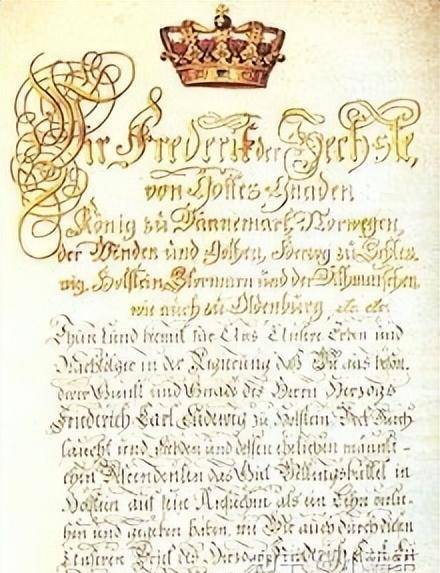 Wir Frederik der Sechste,
von Gottes Gnaden
König zu Dännemark, Norwegen,
der Wenden und Gothen, Herzog zu Schles-
wig, Holstein, Stormarn und der Dithmarschen,
wie auch zu Oldenburg, etc. etc.
Thun kund hiemit für Uns Unsere Erben und
Nachfolger in der Regierung daß Wir aus beson-
derer Gunst und Gnade des Herrn Herzogs
Friederich Carl Ludewig zu Holstein Beck Durch-
laucht und Liebden und dessen ehelichen männli-
chen Descendenten das Gut Wellingsbüttel in
Holstein auf sein Ansuchen als ein Lehn verlie-
hen und gegeben haben, wie Wir auch durch diesen
Unseren Brief des Herzogs Friederich Carl